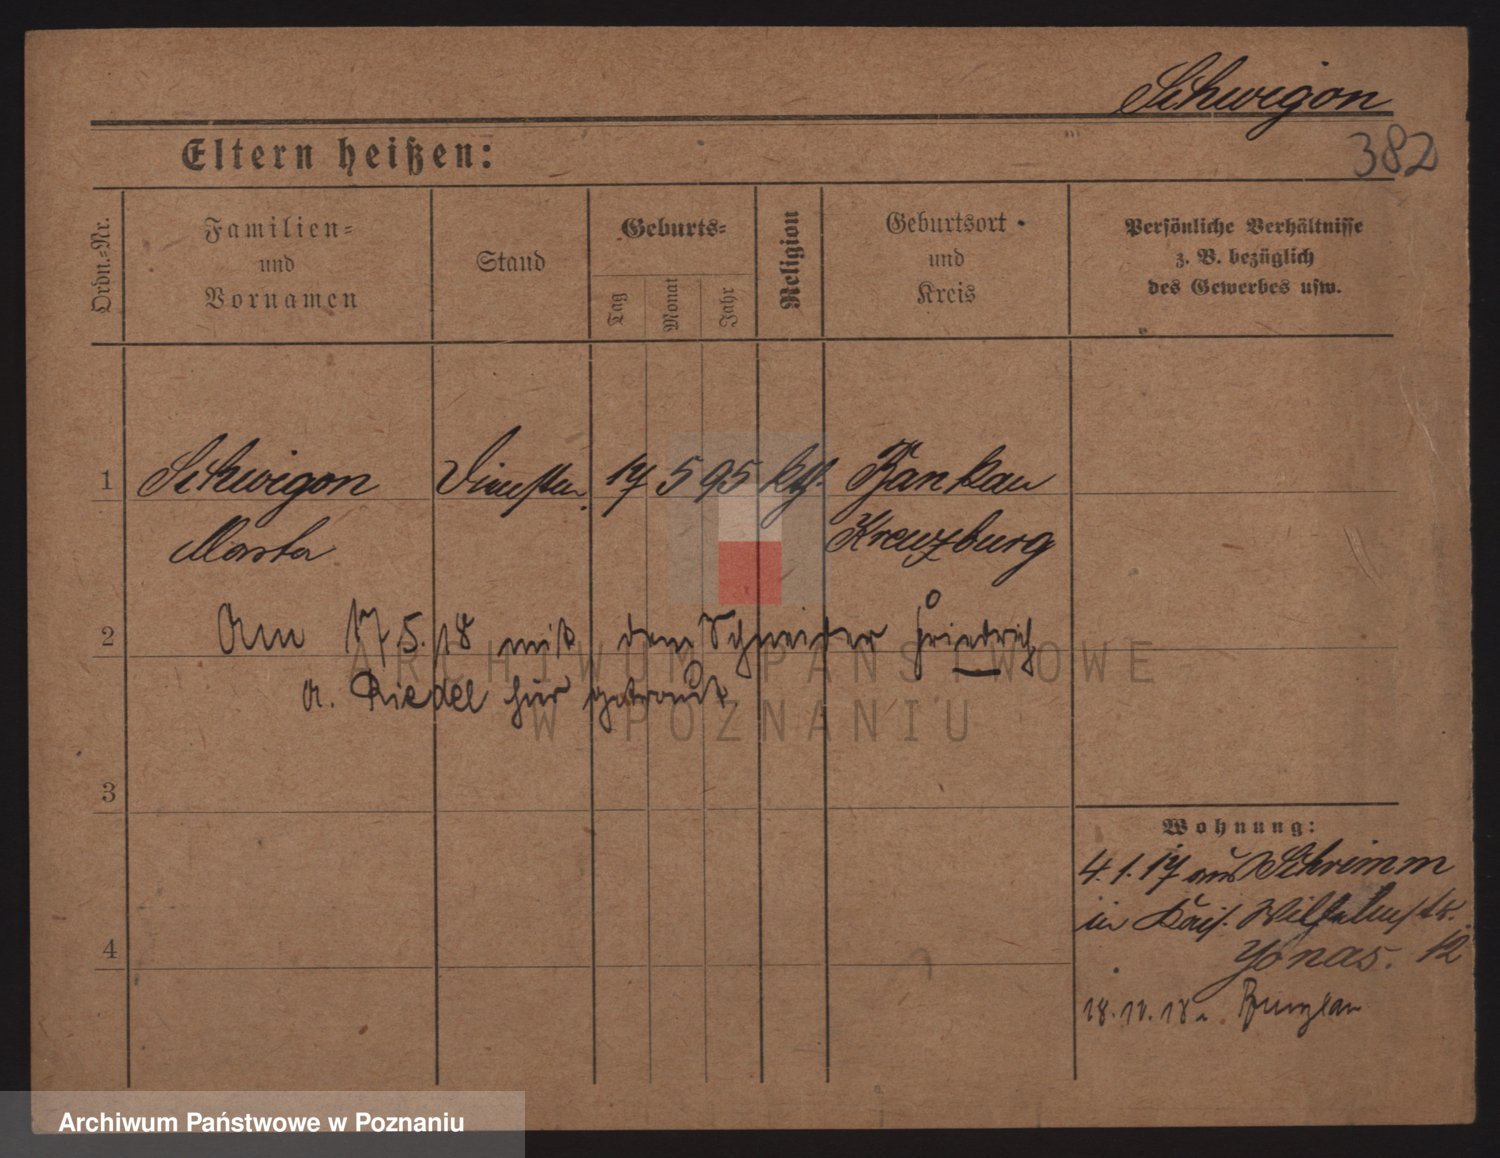 Schwigon
382
Eltern heißen:
Ordn.-Nr.
Familien-
und
Vornamen
Stand
Geburts-
Tag
Monat
Jahr
Religion
Geburtsort
und
Kreis
Persönliche Verhältnisse
z. B. bezüglich
des Gewerbes usw.
1 Schwigon 17 5 95 kth. Bankau
Marta Kreuzburg
2 Am 17.5.18 mit dem Schneider Friedrich
A. Riedel hier getraut
3
4
Wohnung:
4.1.17 aus Schrimm
in Kais. Wilhelmstr.
Jonas. 12
18.11.18 n. Bunzlau
ARCHIWUM PAŃSTWOWE
W POZNANIU
Archiwum Państwowe w Poznaniu